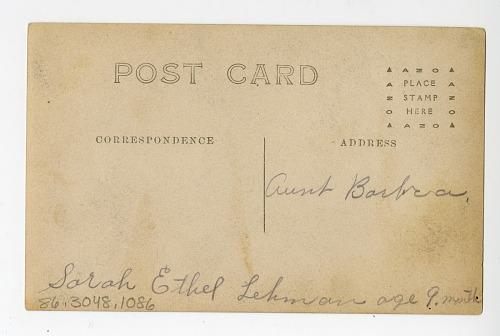 POST CARD
AZO
PLACE
STAMP
HERE
AZO
AZO
AZO
CORRESPONDENCE
ADDRESS
Aunt Barbra,
Sarah Ethel Lehman age 9. month
86.3048.1086